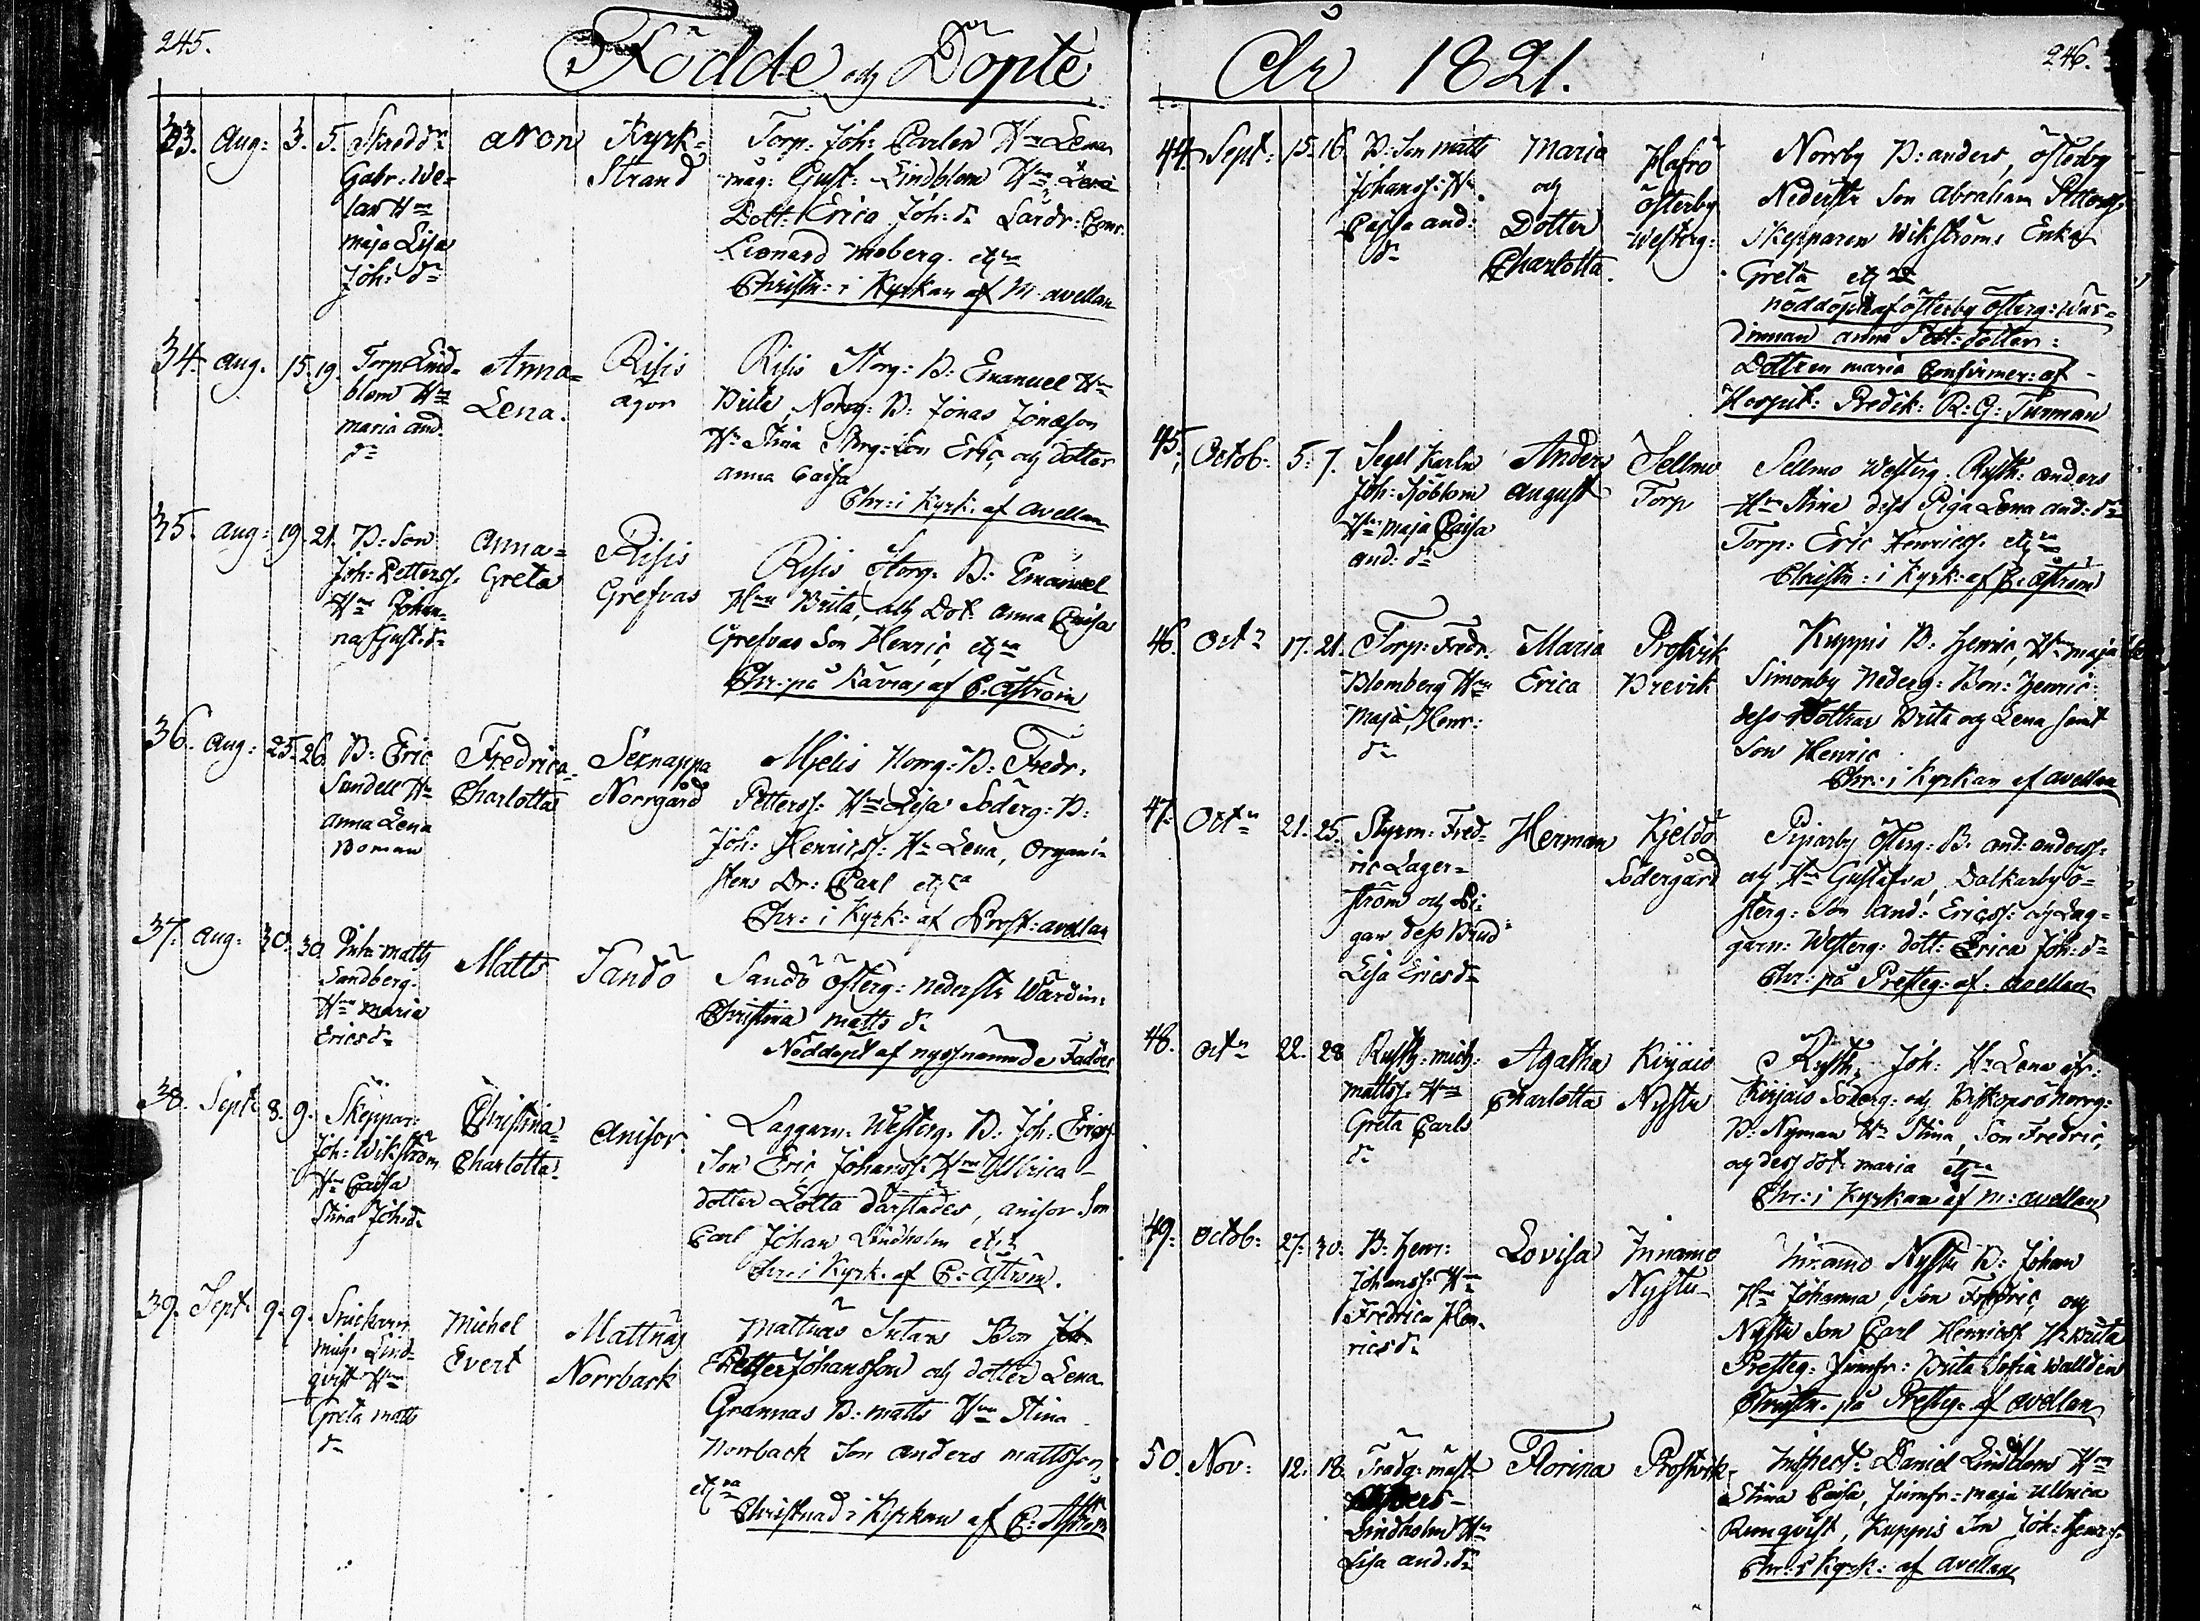 245.
Födde och Döpte
33. Aug: 3. 5. Skredd:
Gabr: We-
lan Hu
Maja Lisa
Joh: dr
Aron
Kyrk-
Strand
Torp: Joh: Carlen Hu Lena
Mag: Gust: Lindblom Hu Lena
Dott: Erica Joh: dr
Leonard Moberg etc
Christn: i Kyrkan af M. Avellan
34. Aug. 15. 19. Torp Lind-
blom Hu
Maria And.
dr
Anna-
Lena.
Risis
Ris Storg: B: Emanuel Hu
Brita Norrg: B: Jonas Jonasson
Hu Stina Storg: Son Eric och Dotter
Anna Caisa
Chr: i Kyrk: af Avellan
35. Aug: 19. 21. B: Son
Joh: Petterss.
Hu Johan-
na Gust: dr
Anna-
Greta
Risis
Grefvas
Risis Storg: B: Emanuel
Hu Brita, och Dot. Anna Caisa
Grefvas Son Henric, etc
Chr: på af C. Åström
36. Aug: 25. 26. B: Eric
Sundell Hu
Anna Lena
Boman
Fredrica-
Charlotta
Sexnappa
Norrgård
Mjelis Norrg: B: Fredr.
Petterss: Hu Lisa Söderg: B:
Joh: Henricss: Hu Lena, Organi-
stens Dr: Carl etc
Chr: i Kyrk: af Prost: Avellan
37. Aug: 30. 30. Matts
Sandberg.
Hu Maria
Ericsdr
Matts
Sandö
Sandö Österg: Nederste Wärdin:
Christina Matts dr
Nöddöpt af nyssnämnde Fadder
38. Sept: 8. 9. Skeppar:
Joh: Wikström
Hu Caisa
Stina Joh: dr
Christina-
Charlotta.
Anisor.
Laggarn: Westerg. B: Joh: Ericss.
Son Eric Johanss: Hu Ullrica
dotter Lotta därstädes, Anisor Son
Carl Johan Lindholm etc
Chr: i Kyrk. af C: Åström.
39. Sept: 9. 9. Snickarn
Mich: Lind-
qvist Hu
Greta Matts
dr
Michel
Evert
Mattnäs
Norrback
Mattnäs Sutars Bon
Petter Johansson och dotter Lena
Grannas B: Matts Hu Stina
Norrback Son Anders Mattsson
etc
Christnad i Kyrkan af C: Åström
År 1821.
246.
44. Sept: 15. 16. B: Son Matts
Johanss: Hu
Caisa And:
dr
Maria
och
Dotter
Charlotta.
Hafrö
Österby
Westerg:
Norrby B: Anders, Österby
Nederste Son Abraham Petterss.
Skepparen Wikströms Enka
Greta etc
Nöddöpt af Österby Österg: Wär-
dinnan Anna Pett: dotter:
Dottren Maria Confirmer: af
Hospit: Predik: R: G: Tunman
45. Octob: 5. 7. Segel Karln
Joh: Sjöblom
Hu Maja Caisa
And: dr
Anders
August
Sellmo
Torp
Sellmo Westerg. Rusth: Anders
Hu Stina dess Piga Lena And: dr
Torp: Eric Henricss. etc
Christn: i Kyrk: af C. Åström
46. Oct: 17. 21. Torp: Fredr.
Blomberg Hu
Maja Henr:
dr
Maria
Erica
Prostvik
Brevik
Kuppis B: Henric, Hu Maja
Simonby Nederg: Bon: Henric
dess Döttrar Brita och Lena samt
Son Henric
Chr: i Kyrkan af Avellan
47. Oct: 21. 25. Styrm: Fred-
ric Lager-
ström och Pi-
gan dess Brud
Lisa Ericsdr
Herman
Kjeldö
Södergård
Pijparby Österg: B. And: Anderss:
och Hu Gustafva, Dalkarby Ö-
sterg: Son And: Ericss: och Lag-
garn: Westerg: dott: Erica Joh: dr
Chr: på Presteg: af: Avellan
48. Oct: 22. 28. Rusth: Mich:
Mattss: Hu
Greta Carls
dr
Agatha
Charlotta
Kirjais
Nystu
Rusth: Joh: Hu Lena fr:
Kirjais Söderg: och Biskopsö Norrg:
B: Nyman Hu Stina, Son Fredric,
och dess dot: Maria etc
Chr: i Kyrkan af M: Avellan
49. Octob: 27. 30. B: Henr:
Johanss: Hu
Fredrica Hen-
ricsdr
Lovisa
Innamo
Nystu
Innamo Nystu B: Johan
Hu Johanna, Son Fredric, och
Nystu Son Carl Henricss. Hu Brita
Presteg: Jumfr: Brita Sofia Walldin
Christn. på Presteg: af Avellan
50. Nov: 12. 18. Trädg: mäst:
Lindholm Hu
Lisa And: dr
Florina
Prostvik
Inspect: Daniel Lindblom Hu
Stina Caisa, Jumfr: Maja Ullrica
Runqvist, Kuppis Son Joh: Henricss.
Chr: i Kyrk: af Avellan